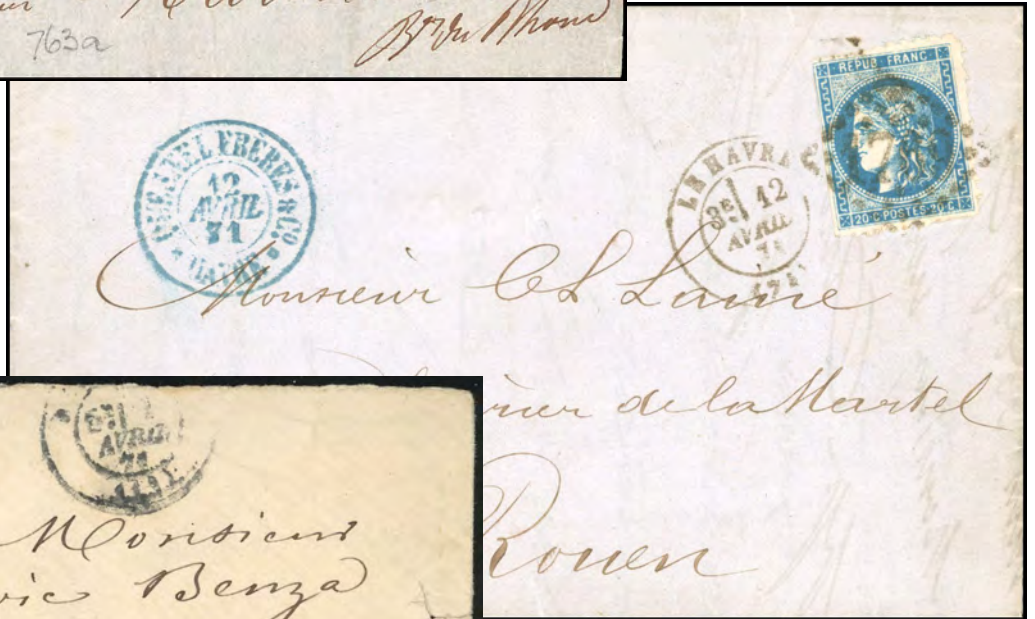 763a
Bes du Rhone
REPUB FRANC
20 C POSTES 20 C
FRERES & CO
12
AVRIL
71
HAVRE
LE HAVRE
3E 12
AVRIL
71
Monsieur Ch Lainé
de la Martel
Rouen
AVRIL
71
Monsieur
Benza